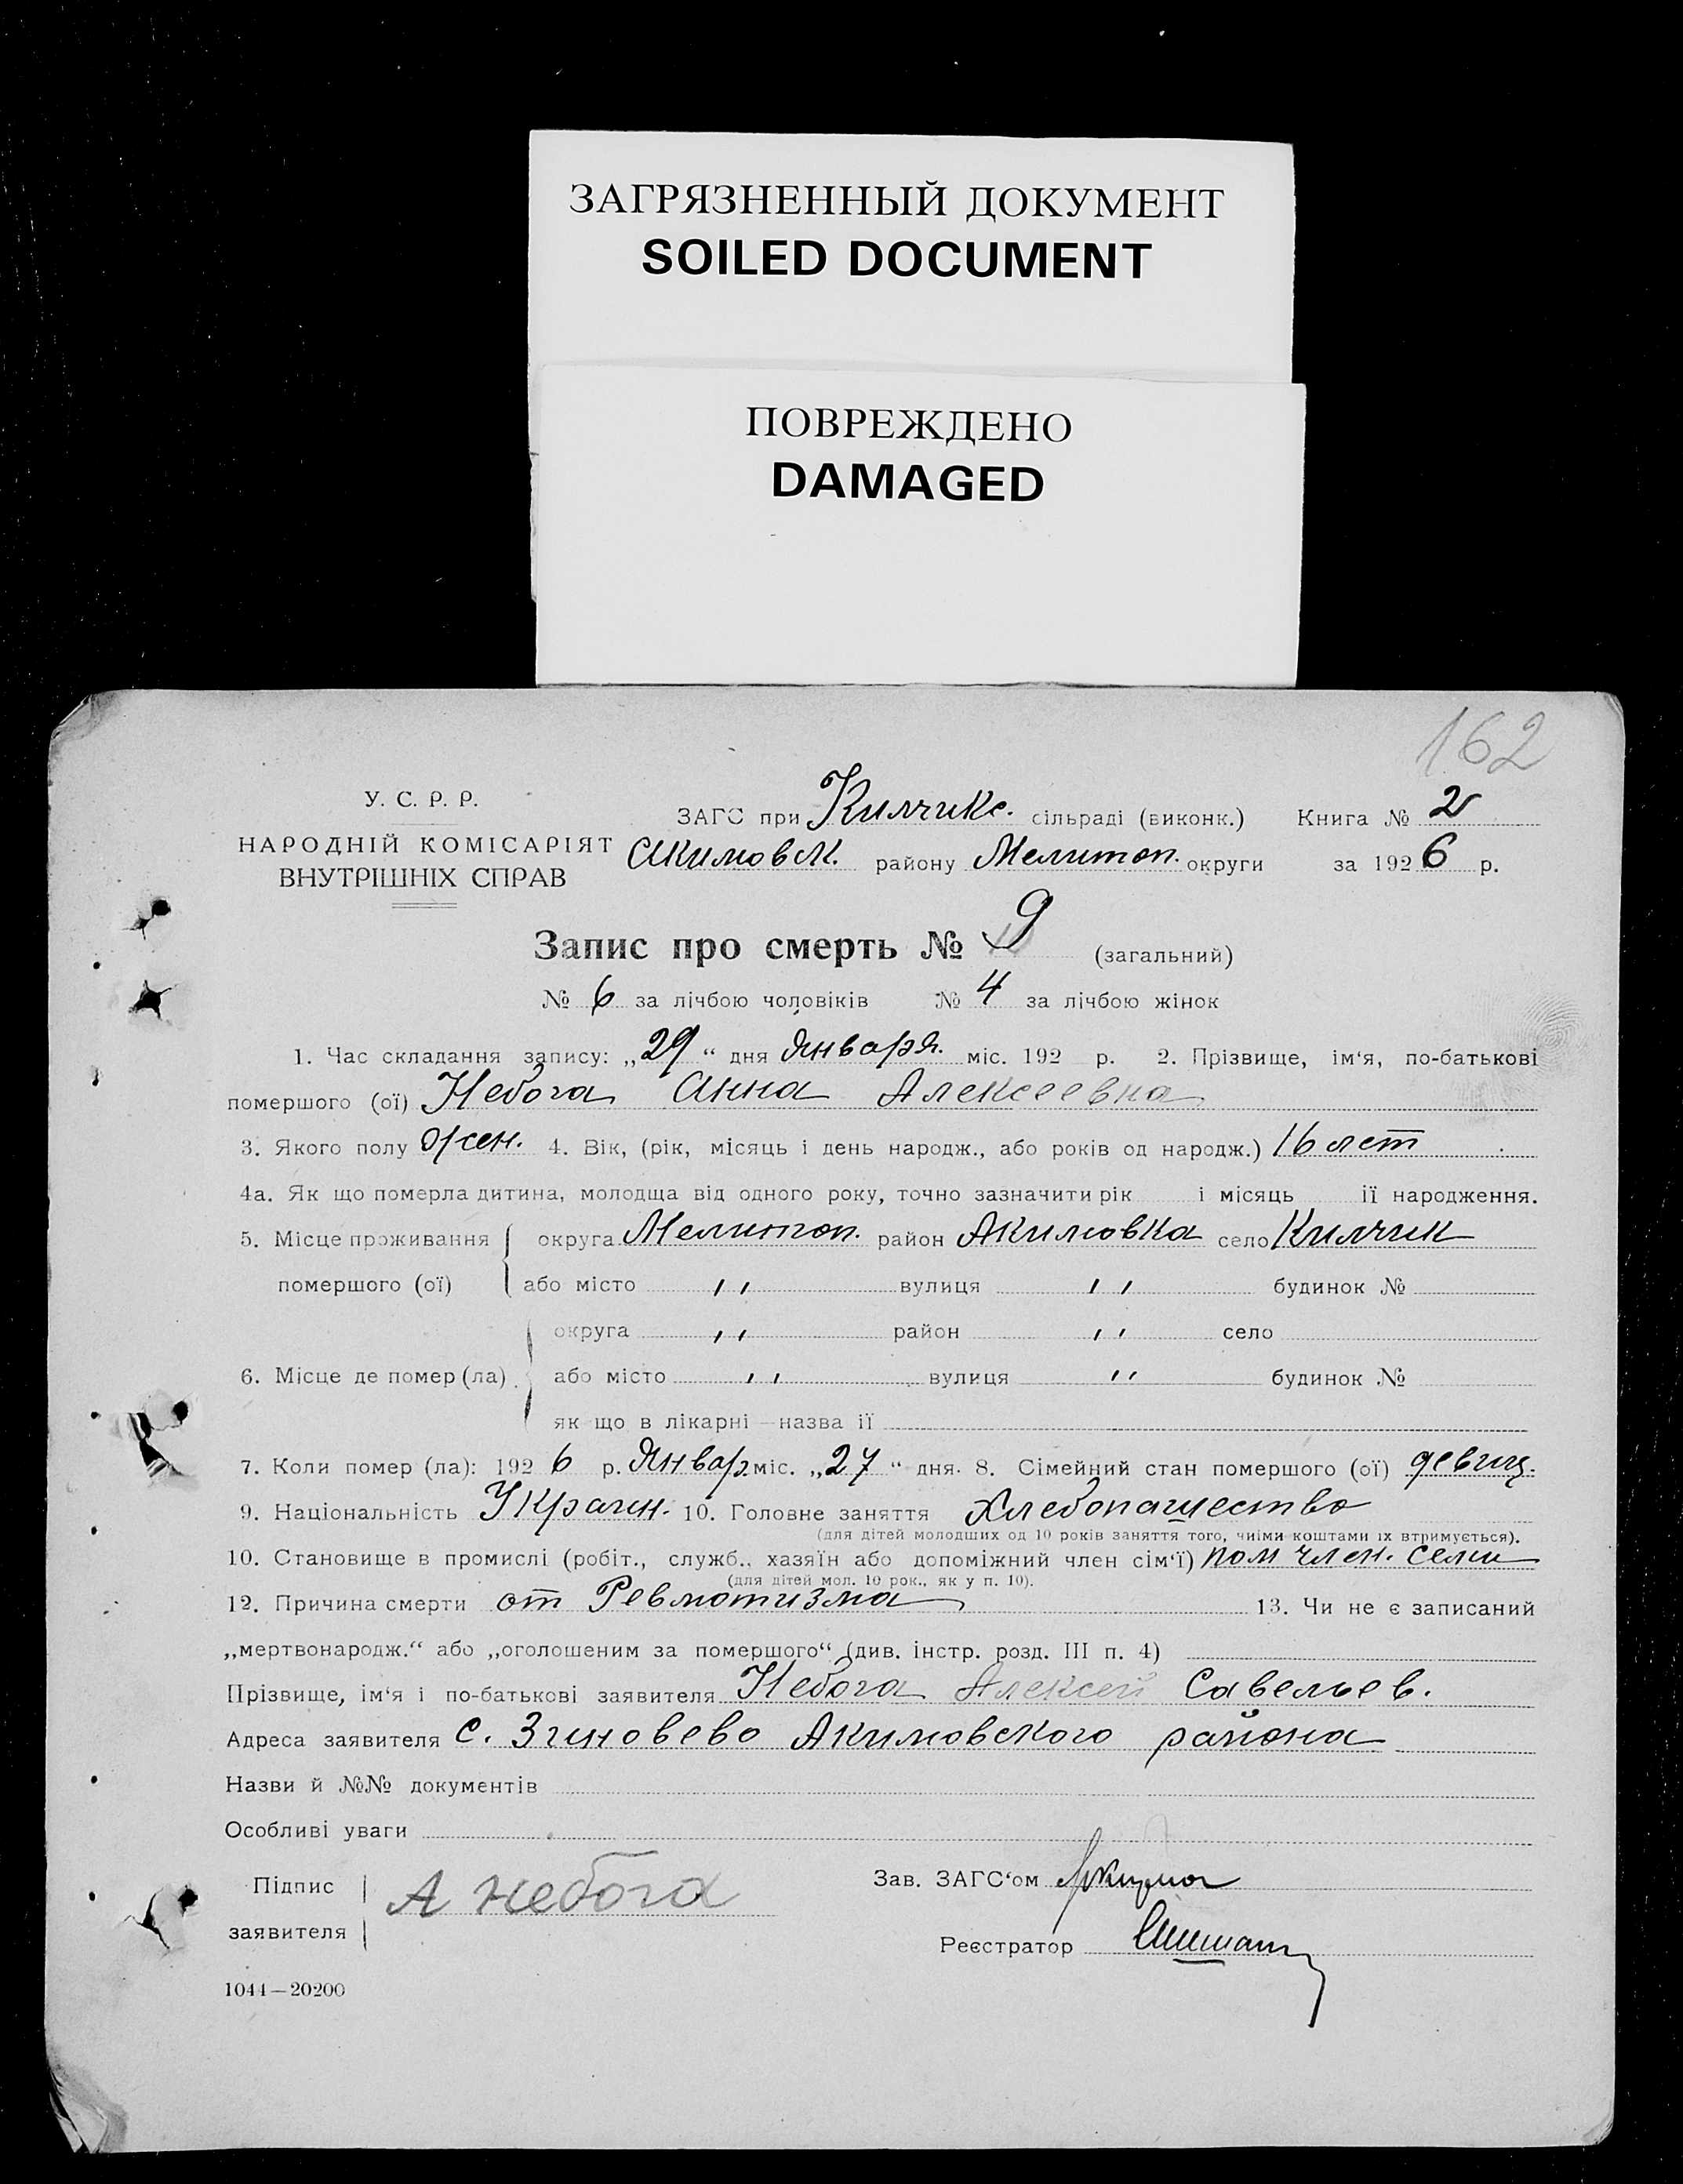 ЗАГРЯЗНЕННЫЙ ДОКУМЕНТ
SOILED DOCUMENT
ПОВРЕЖДЕНО
DAMAGED
162
У. С. Р. Р.
НАРОДНІЙ КОМІСАРІЯТ
ВНУТРІШНІХ СПРАВ
ЗАГС при Килчикс. сільраді (виконк.) Книга № 2
Акимовск. району Мелитоп. округи за 1926 р.
Запис про смерть № 9 (загальний)
№ 6 за лічбою чоловіків № 4 за лічбою жінок
1. Час складання запису: „29“ дня Января. міс. 192 р. 2. Прізвище, ім‘я, по-батькові
помершого (ої) Небога Анна Алексеевна
3. Якого полу Жен. 4. Вік, (рік, місяць і день народж., або років од народж.) 16 лет
4а. Як що померла дитина, молодща від одного року, точно зазначити рік і місяць її народження.
5. Місце проживання округа Мелитоп. район Акимовка село Килчик
помершого (ої) або місто " вулиця " будинок №
округа " район " село
6. Місце де помер (ла) або місто " вулиця " будинок №
як що в лікарні — назва її
7. Коли помер (ла): 1926 р. Январ. міс. „27“ дня. 8. Сімейний стан помершого (ої) девиц.
9. Національність Украин. 10. Головне заняття Хлебопашество
(для дітей молодших од 10 років заняття того, чиїми коштами їх втримується).
10. Становище в промислі (робіт., служб., хазяїн або допоміжний член сім‘ї) пом член. семи
(для дітей мол. 10 рок., як у п. 10).
12. Причина смерти от Ревмотизма 13. Чи не є записаний
„мертвонародж.“ або „оголошеним за помершого“ (див. інстр. розд. III п. 4)
Прізвище, ім‘я і по-батькові заявителя Небога Алексей Савельев.
Адреса заявителя с. Зиновево Акимовского района
Назви й №№ документів
Особливі уваги
Підпис А Небога
заявителя
Зав. ЗАГС‘ом
Реєстратор
1044—20200